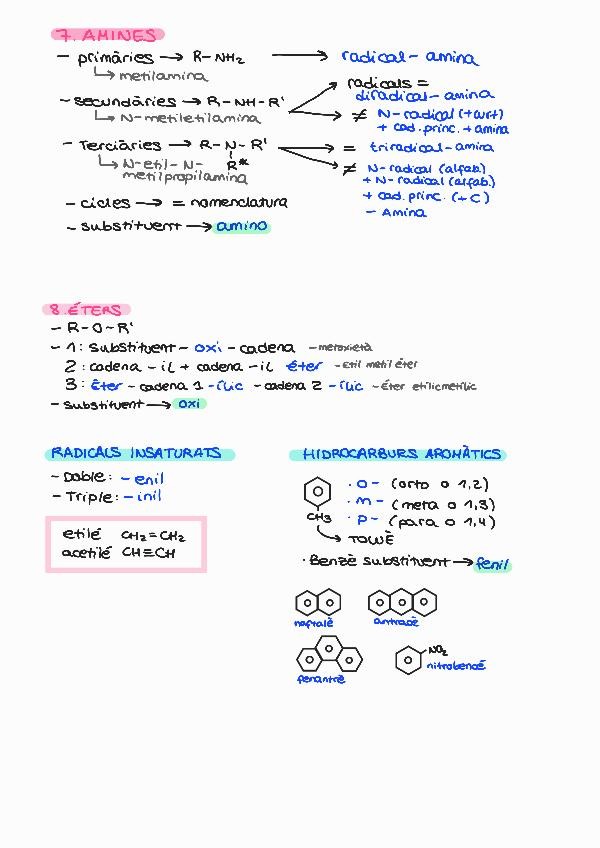 7. AMINES
- primàries → R-NH₂ → radical-amina
↳ metilamina
- secundàries → R-NH-R' radicals =
diradical-amina
↳ N-metiletilamina ≠ N-radical (+curt)
+ cad.princ.+amina
- Terciàries → R-N-R' = triradical-amina
↳ N-etil-N- R* ≠ N-radical (alfab)
metilpropilamina + N-radical (alfab.)
+ cad.princ. (+C)
- Amina
- cicles → = nomenclatura
- substituent → amino
8. ÉTERS
- R-O-R'
- 1: substituent- oxi - cadena - metoxietà
2: cadena -il + cadena -il éter - etil metil éter
3: Éter - cadena 1 -ílic - cadena 2 -ílic - éter etílicmetílic
- substituent → oxi
RADICALS INSATURATS
- Doble: -enil
- Triple: -inil
etilè CH₂=CH₂
acetilé CH≡CH
HIDROCARBURS AROMÀTICS
· O - (orto o 1,2)
· m - (meta o 1,3)
· P - (para o 1,4)
CH3
TOLUÈ
· Benzè substituent → fenil
naftalè antracè
NO₂
nitrobencé
fenantrè